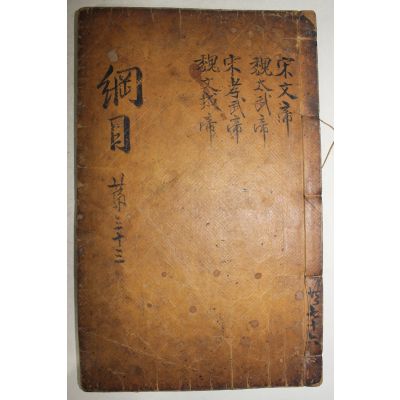 宋文帝
魏太武帝
宋孝武帝
魏文成帝
綱目
第三十三